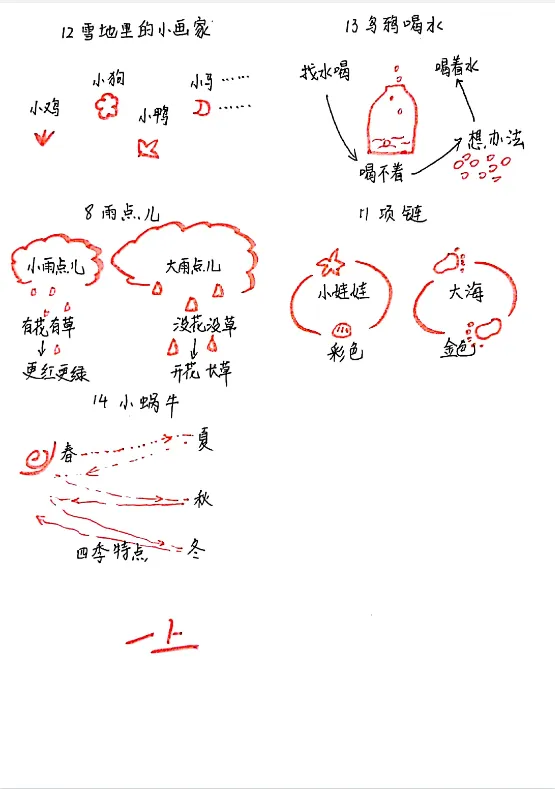 12 雪地里的小画家
小鸡
小狗
小鸭
小马……
……
13 乌鸦喝水
找水喝
喝不着
想办法
喝着水
8 雨点儿
小雨点儿
有花有草
更红更绿
大雨点儿
没花没草
开花 长草
11 项链
小娃娃
彩色
大海
金色
14 小蜗牛
春
夏
秋
冬
四季特点
一上